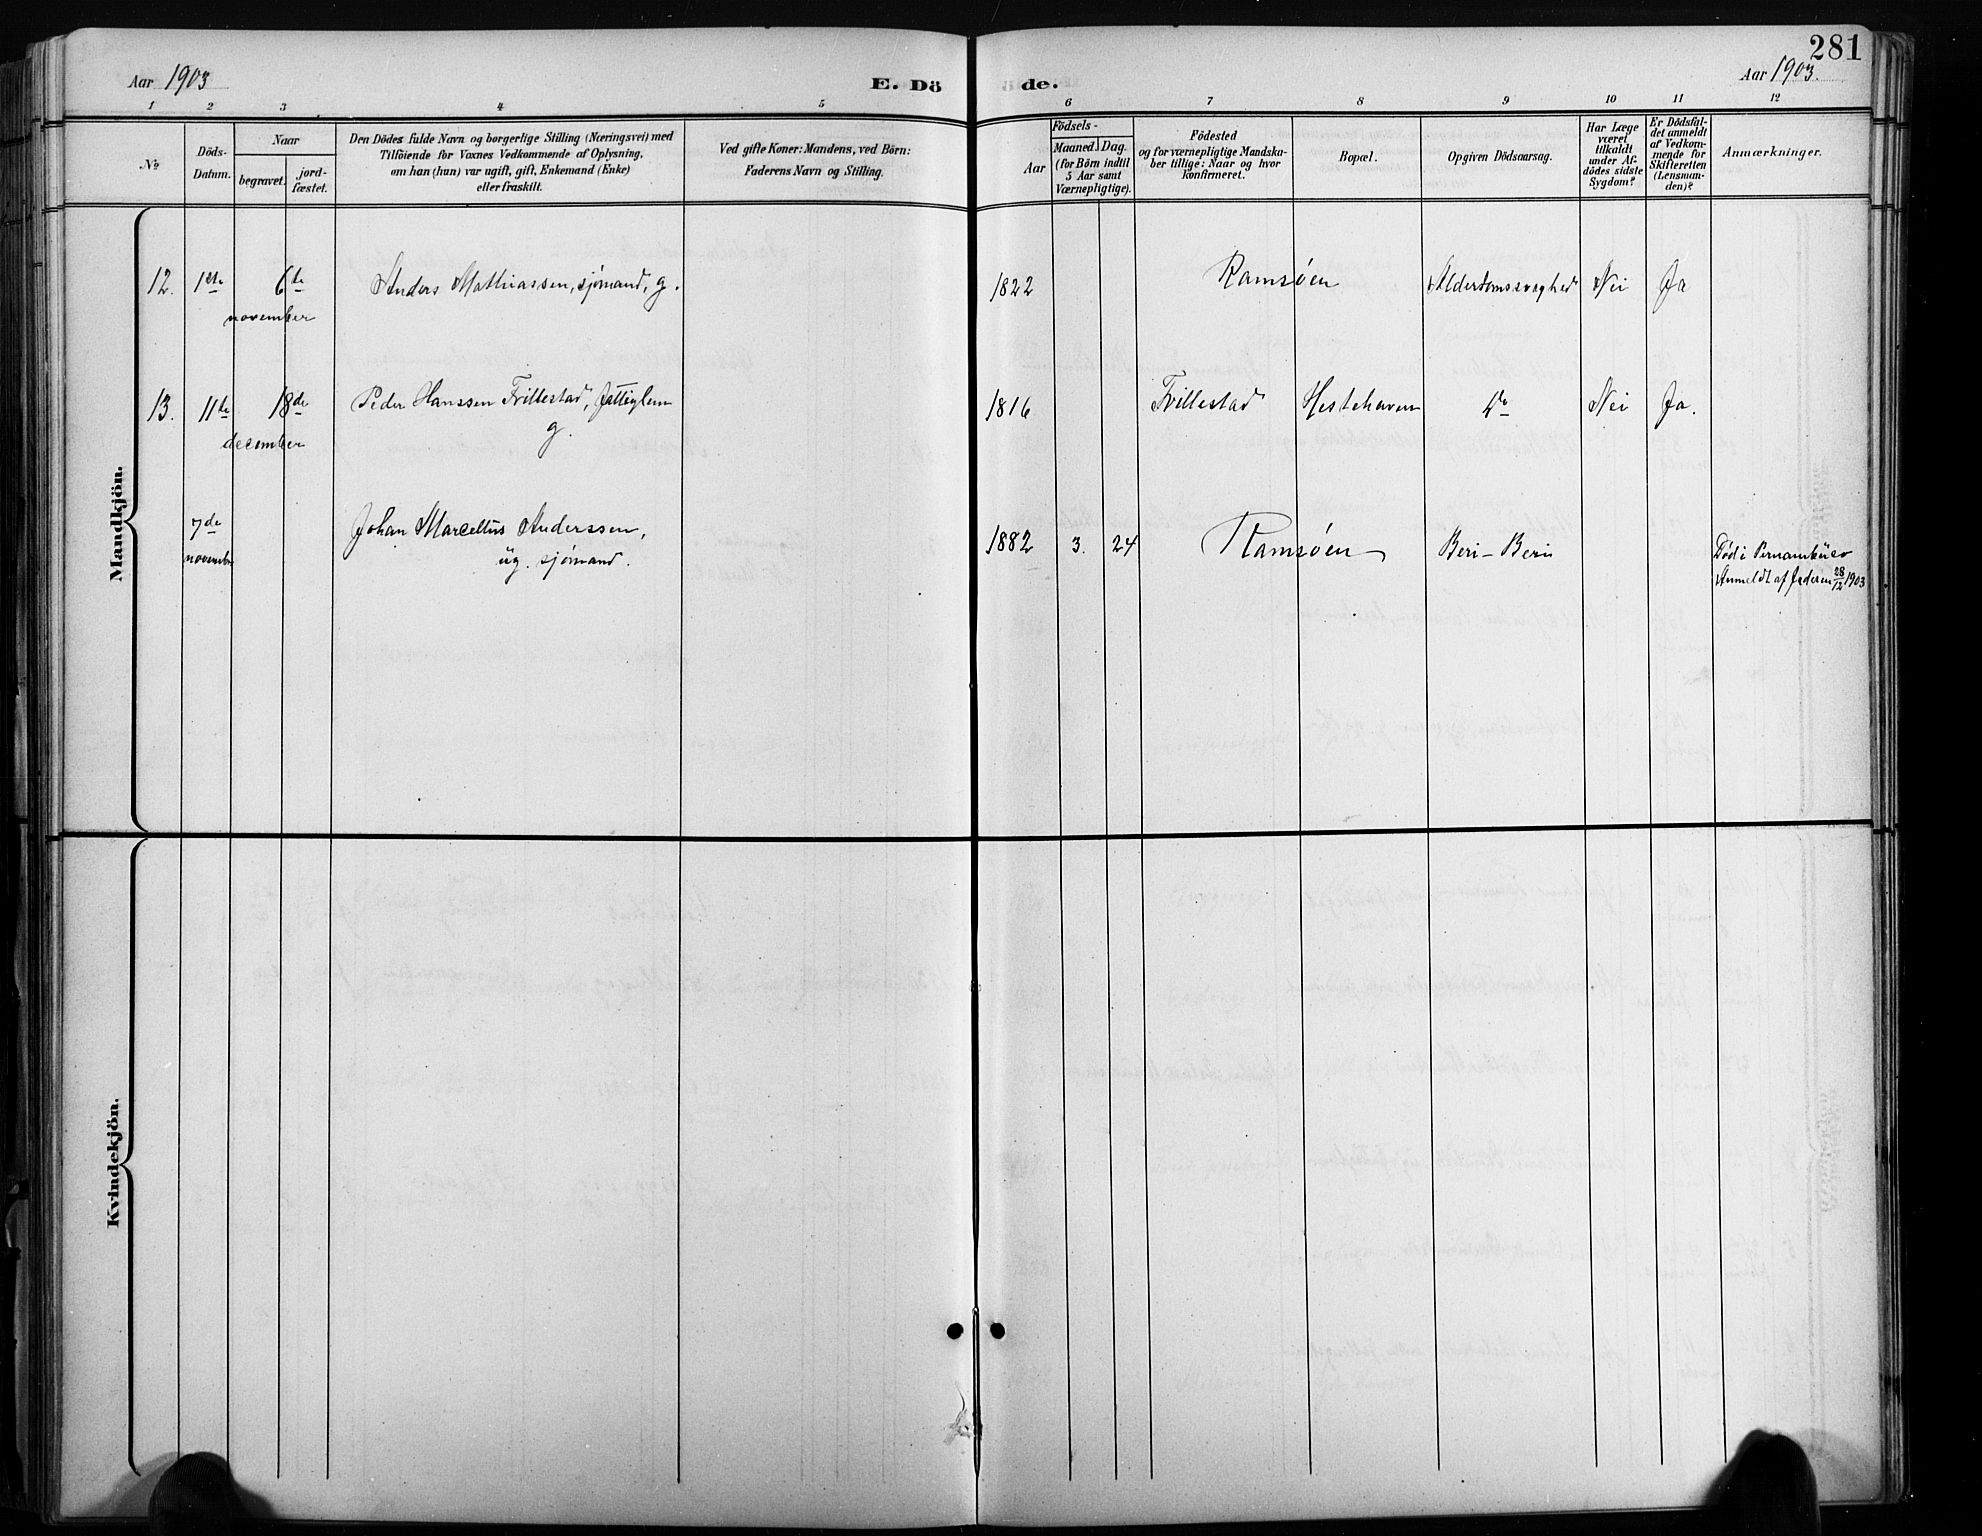 281
Aar 1903
E. Dö
de.
Aar 1903.
1 2 3 4 5 6 7 8 9 10 11 12
No
Döds-
Datum.
Naar
begravet.
jord-
fæstet.
Den Dödes fulde Navn og borgerlige Stilling (Næringsvei) med
Tilföiende for Voxnes Vedkommende af Oplysning,
om han (hun) var ugift, gift, Enkemand (Enke)
eller fraskilt.
Ved gifte Koner: Mandens, ved Börn:
Faderens Navn og Stilling.
Födsels-
Aar
Maaned. Dag.
(for Börn indtil
5 Aar samt
Værnepligtige).
Födested
og for værnepligtige Mandska-
ber tillige: Naar og hvor
konfirmeret.
Bopæl.
Opgiven Dödsaarsag.
Har Læge
været
tilkaldt
under Af-
dödes sidste
Sygdom?
Er Dödsfal-
det anmeldt
af Vedkom-
mende for
Skifteretten
(Lensman-
den)?
Anmærkninger.
Mandkjön.
12. 1ste 6te Anders Mathiassen, sjømand, g. 1822 Ramsøen Alderdomssvaghed Nei Ja
november
13. 11te 18de Peder Hanssen Trillestad, fattiglem 1816 Trillestad Hestehaven Do Nei Ja.
december g.
7de Johan Marcellus Anderssen, 1882 3. 24 Ramsøen Beri-Beri Död i Pernambuco
november ug. sjømand. Anmeldt af faderen 28/12 1903
Kvindekjön.